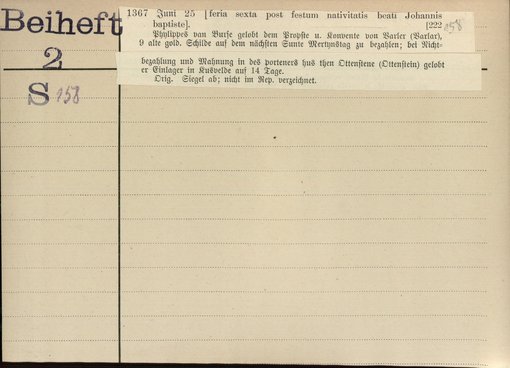 Beiheft
2
S 158
1367 Juni 25 [feria sexta post festum nativitatis beati Johannis
baptiste]. [222 158
Phylippes van Burse gelobt dem Propste u. Konvente von Varler (Varlar),
9 alte gold. Schilde auf dem nächsten Sunte Mertynstag zu bezahlen; bei Nicht-
bezahlung und Mahnung in des porteners hus then Ottenstene (Ottenstein) gelobt
er Einlager in Kusvelde auf 14 Tage.
Orig. Siegel ab; nicht im Rep. verzeichnet.